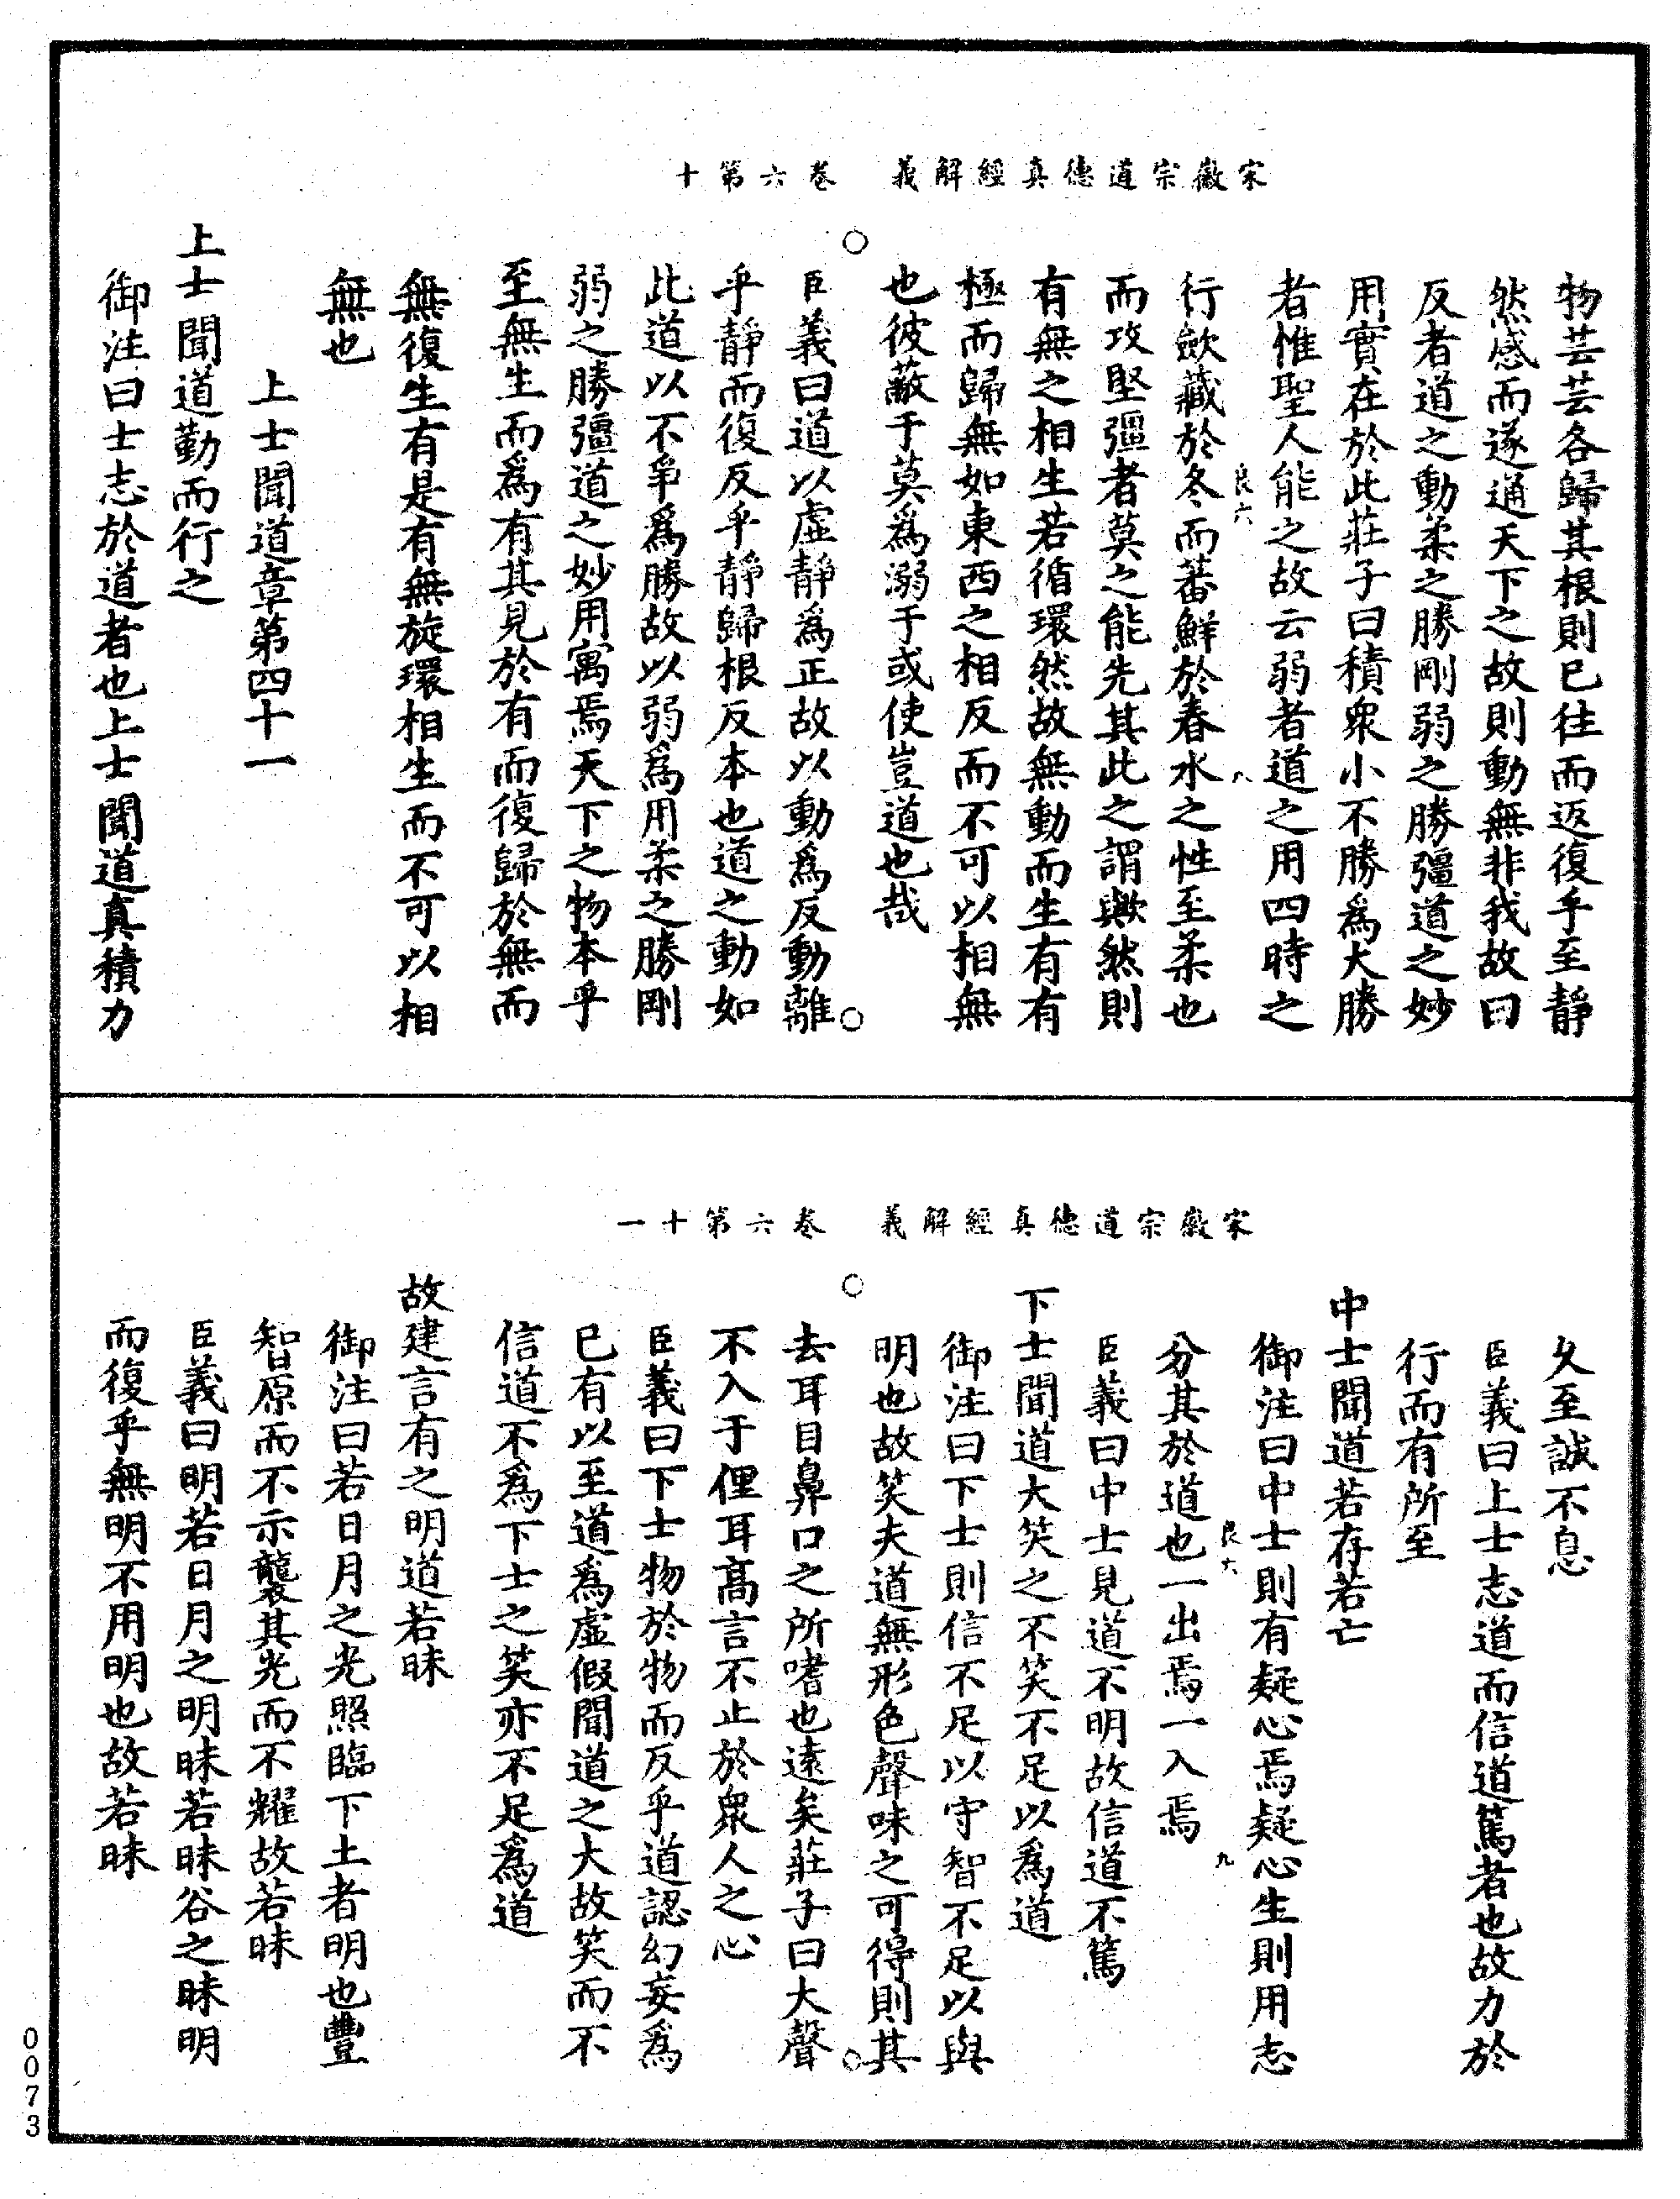 宋徽宗道德真經解義　卷六第十
物芸芸各歸其根則已往而返復乎至靜
然感而遂通天下之故則動無非我故曰
反者道之動柔之勝剛弱之勝彊道之妙
用實在於此莊子曰積衆小不勝爲大勝
者惟聖人能之故云弱者道之用四時之
良六　八
行斂藏於冬而蕃鮮於春水之性至柔也
而攻堅彊者莫之能先其此之謂歟然則
有無之相生若循環然故無動而生有有
極而歸無如東西之相反而不可以相無
也彼蔽于莫爲溺于或使豈道也哉
臣義曰道以虛靜爲正故以動爲反動離
乎靜而復反乎靜歸根反本也道之動如
此道以不爭爲勝故以弱爲用柔之勝剛
弱之勝彊道之妙用寓焉天下之物本乎
至無生而爲有其見於有而復歸於無而
無復生有是有無旋環相生而不可以相
無也
上士聞道章第四十一
上士聞道勤而行之
御注曰士志於道者也上士聞道真積力
宋徽宗道德真經解義　卷六第十一
久至誠不息
臣義曰上士志道而信道篤者也故力於
行而有所至
中士聞道若存若亡
御注曰中士則有疑心焉疑心生則用志
良六　九
分其於道也一出焉一入焉
臣義曰中士見道不明故信道不篤
下士聞道大笑之不笑不足以爲道
御注曰下士則信不足以守智不足以與
明也故笑夫道無形色聲味之可得則其
去耳目鼻口之所嗜也遠矣莊子曰大聲
不入于俚耳高言不止於衆人之心
臣義曰下士物於物而反乎道認幻妄爲
已有以至道爲虛假聞道之大故笑而不
信道不爲下士之笑亦不足爲道
故建言有之明道若昧
御注曰若日月之光照臨下土者明也豐
智原而不示襲其光而不耀故若昧
臣義曰明若日月之明昧若昧谷之昧明
而復乎無明不用明也故若昧
0073